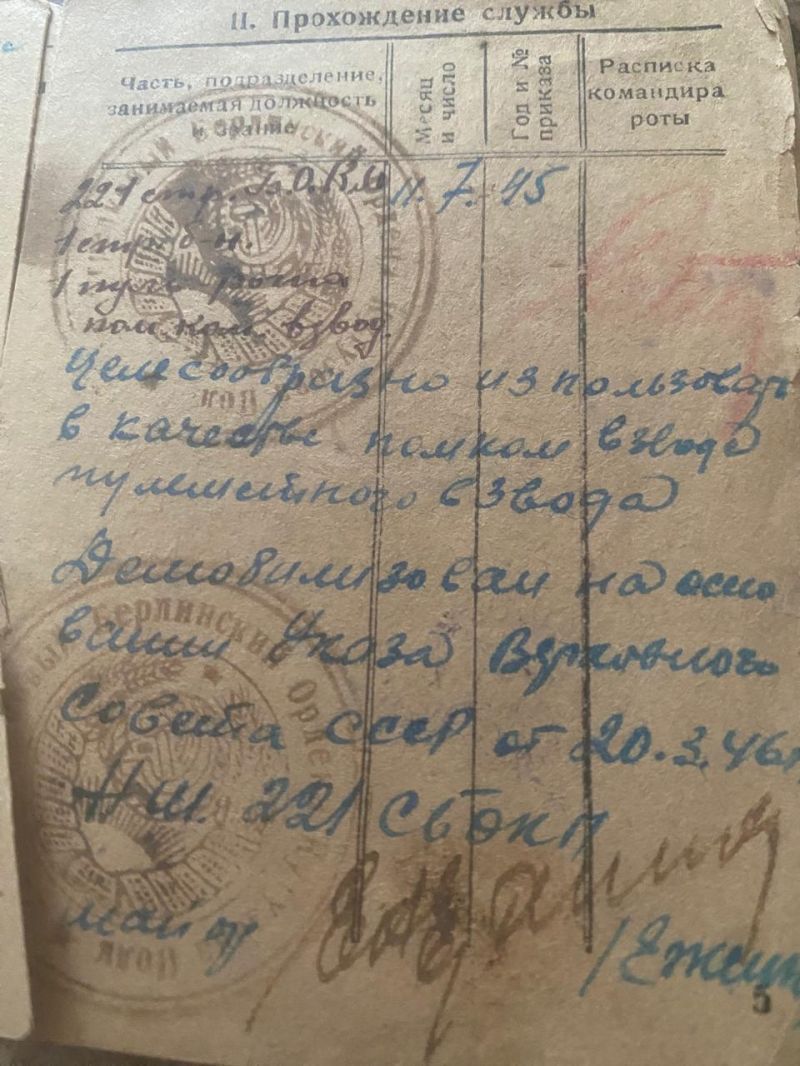 II. Прохождение службы
Часть, подразделение,
занимаемая должность
и звание
Месяц
и число
Год и №
приказа
Расписка
командира
роты
221 стр. Б.О.К.П 11. 7. 45
1 стр б-н.
1 пул рота
пом. ком. взвод.
Целесообразно использовать
в качестве помком взвода
пулеметного взвода
Демобилизован на осно
вании Указа Верховного
Совета СССР от 20.3.46г
НШ 221 СБОКП
майор
5
Берлинский
полк
Берлинский Орде
полк